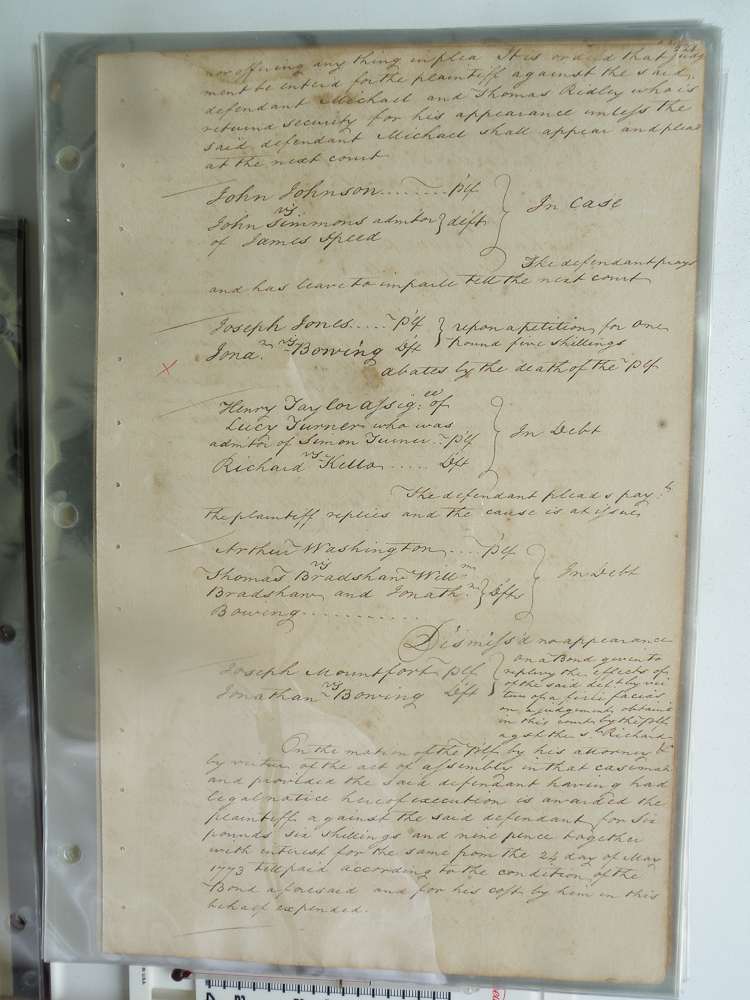 nor offering any thing in plea It is orderd that Judg
ment be enterd for the plaintiff against the said
defendant Michael and Thomas Ridley who is
returnd security for his appearance unless the
said defendant Michael shall appear and plead
at the next court
John Johnson........ plf
vs
John Simmons admtor } deft
of James Speed
In Case
The defendant prays
and has leave to imparle till the next court
Joseph Jones.... plf
vs
Jona.n Bowing Dft
upon a petition for one
pound five shillings
abates by the death of the plf
Henry Taylor assig.ee of
Lucy Turner who was
admtor of Simon Turner.. plf
vs
Richard Kello ..... Dft
In Debt
The defendant pleads pay.t
the plaintiff replies and the cause is at issue
Arthur Washington .... plf
vs
Thomas Bradshaw Will.m
Bradshaw and Jonath.n } Dfts
Bowing.............
In Debt
Dismiss'd no appearance
Joseph Mountfort plf
vs
Jonathan Bowing Dft
on a Bond given to
replevy the effects of
of the said by vir
tue of a fieri facias
on a judgement obtain'd
in this court by the plf
agst the s.d Richard
On the motion of the plf by his attorney &
by virtue of the act of assembly in that case made
and provided the said defendant having had
legal notice hereof execution is awarded the
plaintiff against the said defendant for six
pounds six shillings and nine pence together
with interest for the same from the 24 day of May
1773 till paid according to the condition of the
Bond aforesaid and for his cost by him in this
behalf expended.
IN USA